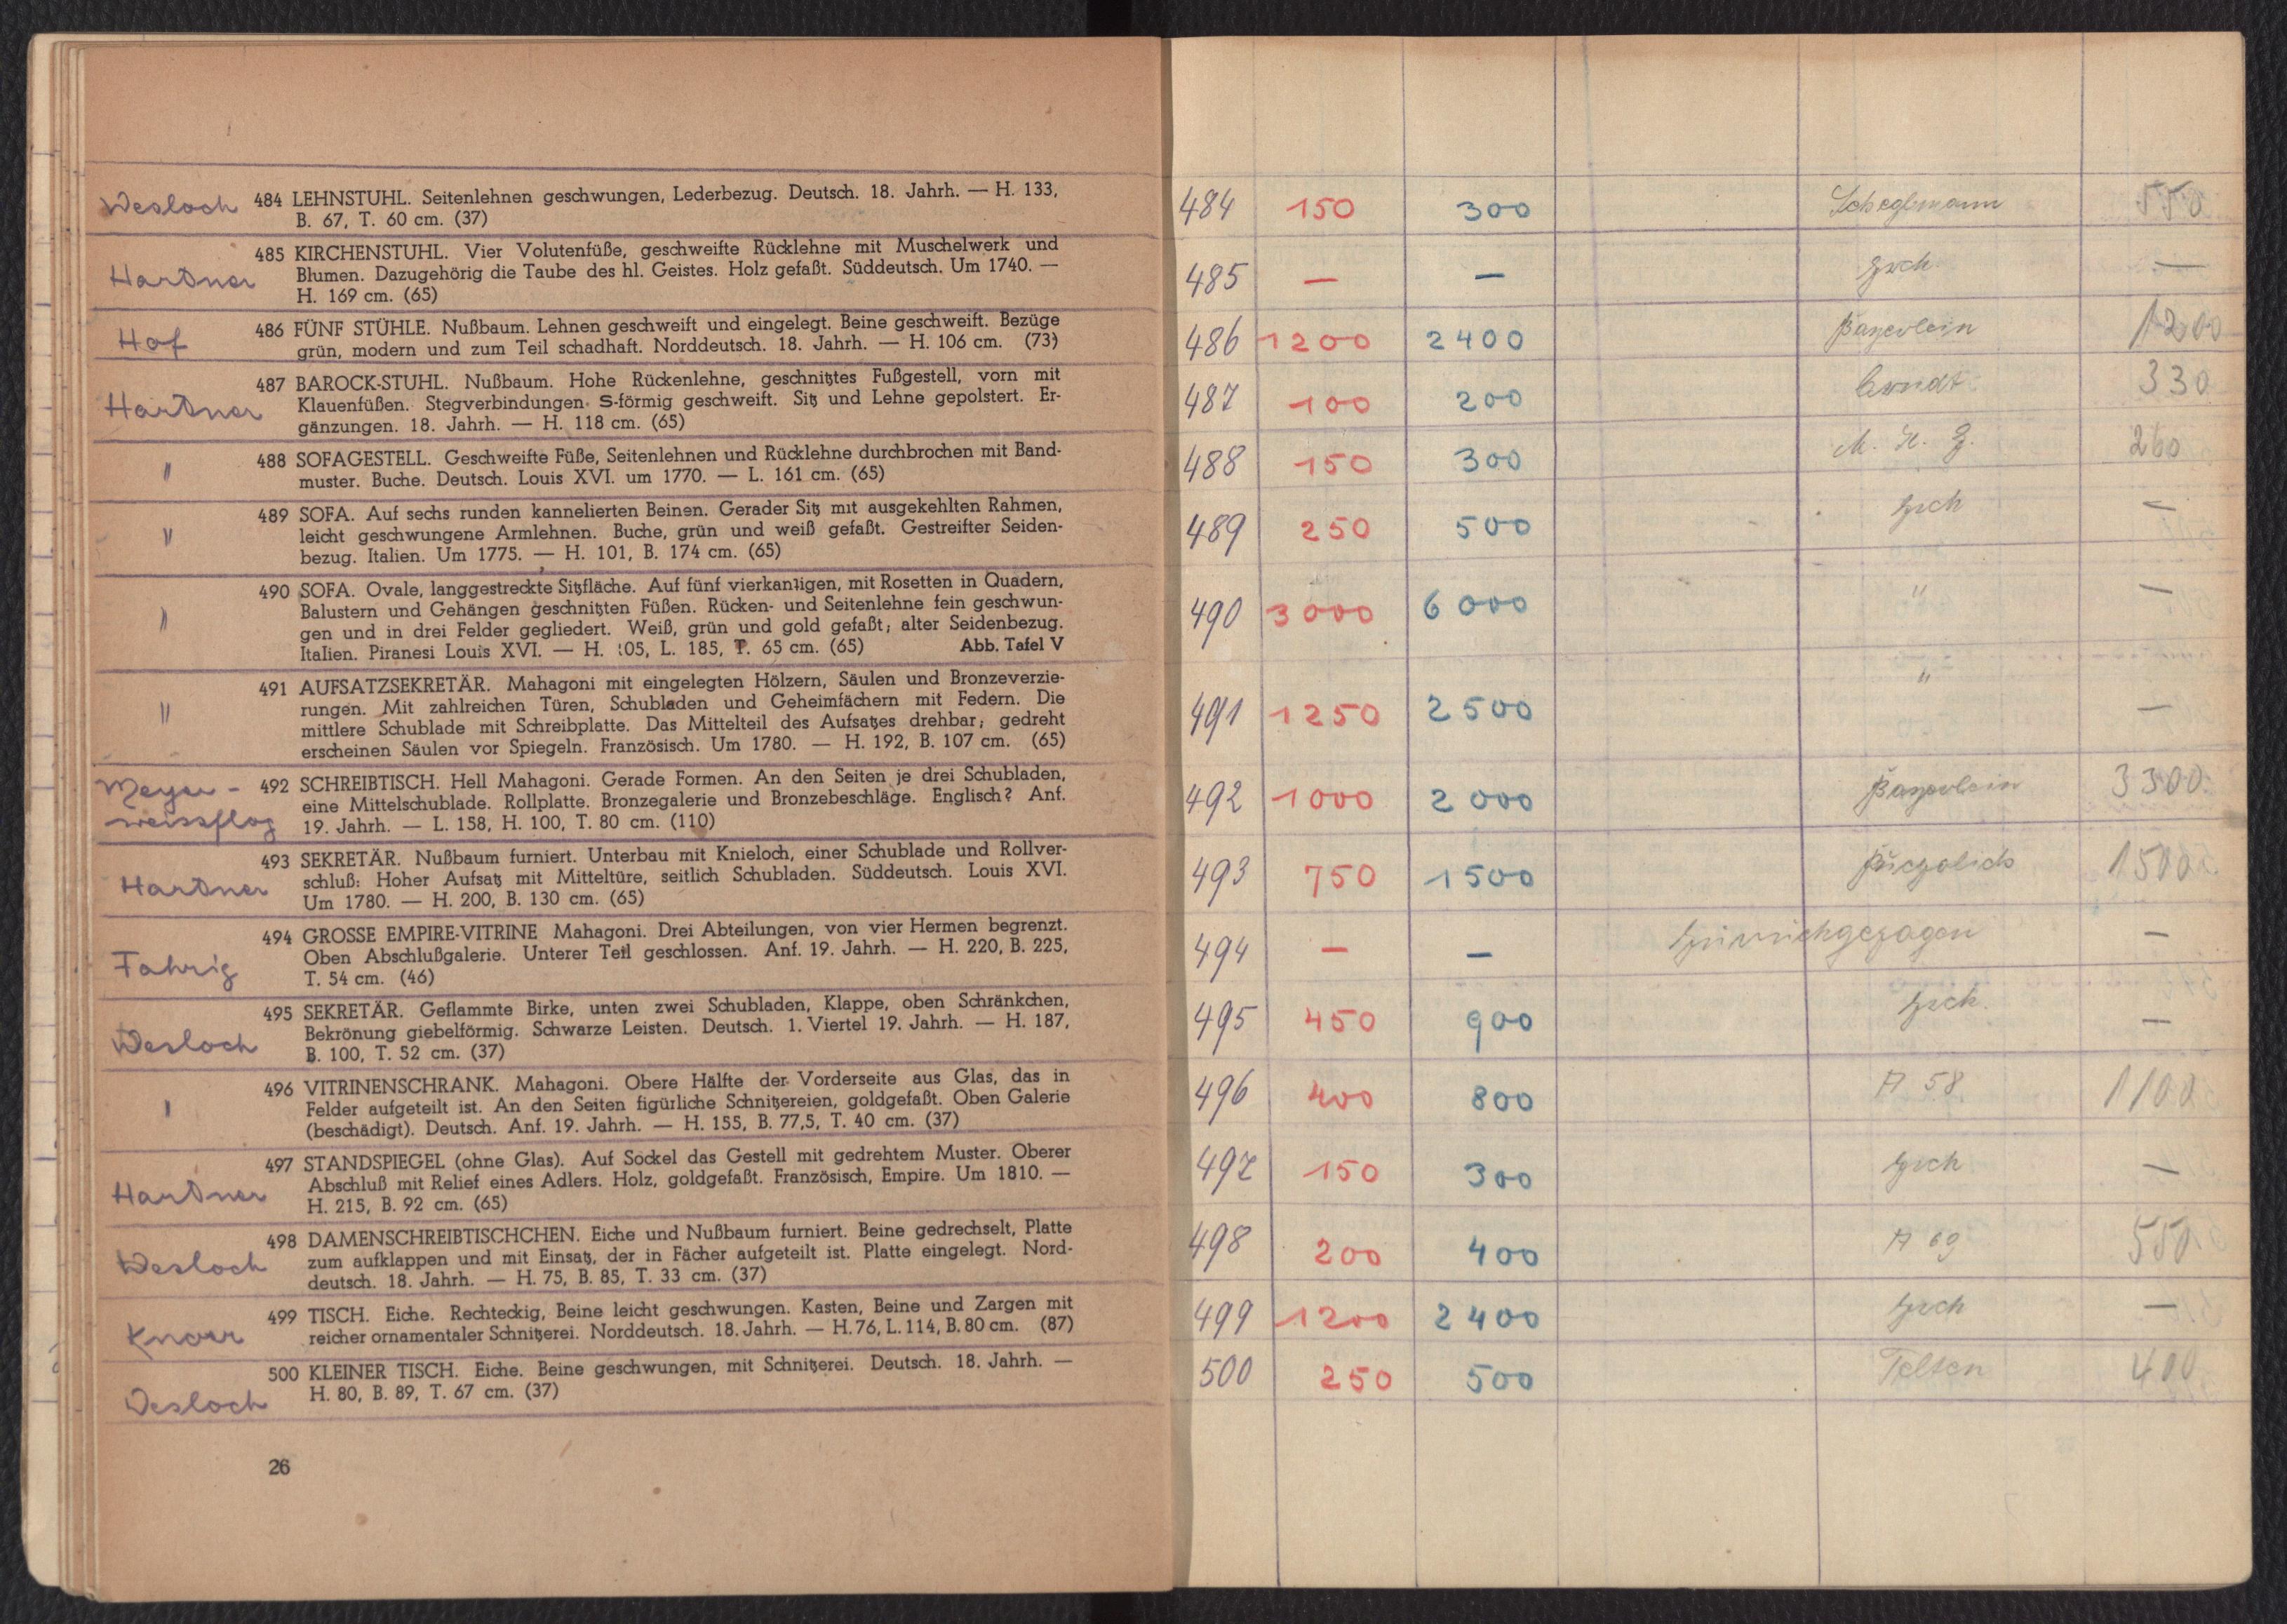 Wesloch 484 LEHNSTUHL. Seitenlehnen geschwungen, Lederbezug. Deutsch. 18. Jahrh. — H. 133,
B. 67, T. 60 cm. (37)
Hartner 485 KIRCHENSTUHL. Vier Volutenfüße, geschweifte Rücklehne mit Muschelwerk und
Blumen. Dazugehörig die Taube des hl. Geistes. Holz gefaßt. Süddeutsch. Um 1740. —
H. 169 cm. (65)
Hof 486 FÜNF STÜHLE. Nußbaum. Lehnen geschweift und eingelegt. Beine geschweift. Bezüge
grün, modern und zum Teil schadhaft. Norddeutsch. 18. Jahrh. — H. 106 cm. (73)
Hartner 487 BAROCK-STUHL. Nußbaum. Hohe Rückenlehne, geschnitztes Fußgestell, vorn mit
Klauenfüßen. Stegverbindungen S-förmig geschweift. Sitz und Lehne gepolstert. Er-
gänzungen. 18. Jahrh. — H. 118 cm. (65)
" 488 SOFAGESTELL. Geschweifte Füße, Seitenlehnen und Rücklehne durchbrochen mit Band-
muster. Buche. Deutsch. Louis XVI. um 1770. — L. 161 cm. (65)
" 489 SOFA. Auf sechs runden kannelierten Beinen. Gerader Sitz mit ausgekehlten Rahmen,
leicht geschwungene Armlehnen. Buche, grün und weiß gefaßt. Gestreifter Seiden-
bezug. Italien. Um 1775. — H. 101, B. 174 cm. (65)
" 490 SOFA. Ovale, langgestreckte Sitzfläche. Auf fünf vierkantigen, mit Rosetten in Quadern,
Balustern und Gehängen geschnitzten Füßen. Rücken- und Seitenlehne fein geschwun-
gen und in drei Felder gegliedert. Weiß, grün und gold gefaßt; alter Seidenbezug.
Italien. Piranesi Louis XVI. — H. 105, L. 185, T. 65 cm. (65) Abb. Tafel V
" 491 AUFSATZSEKRETÄR. Mahagoni mit eingelegten Hölzern, Säulen und Bronzeverzie-
rungen. Mit zahlreichen Türen, Schubladen und Geheimfächern mit Federn. Die
mittlere Schublade mit Schreibplatte. Das Mittelteil des Aufsatzes drehbar; gedreht
erscheinen Säulen vor Spiegeln. Französisch. Um 1780. — H. 192, B. 107 cm. (65)
Meyer-
weissflog 492 SCHREIBTISCH. Hell Mahagoni. Gerade Formen. An den Seiten je drei Schubladen,
eine Mittelschublade. Rollplatte. Bronzegalerie und Bronzebeschläge. Englisch? Anf.
19. Jahrh. — L. 158, H. 100, T. 80 cm. (110)
Hartner 493 SEKRETÄR. Nußbaum furniert. Unterbau mit Knieloch, einer Schublade und Rollver-
schluß: Hoher Aufsatz mit Mitteltüre, seitlich Schubladen. Süddeutsch. Louis XVI.
Um 1780. — H. 200, B. 130 cm. (65)
Fahrig 494 GROSSE EMPIRE-VITRINE Mahagoni. Drei Abteilungen, von vier Hermen begrenzt.
Oben Abschlußgalerie. Unterer Teil geschlossen. Anf. 19. Jahrh. — H. 220, B. 225,
T. 54 cm. (46)
Wesloch 495 SEKRETÄR. Geflammte Birke, unten zwei Schubladen, Klappe, oben Schränkchen,
Bekrönung giebelförmig. Schwarze Leisten. Deutsch. 1. Viertel 19. Jahrh. — H. 187,
B. 100, T. 52 cm. (37)
" 496 VITRINENSCHRANK. Mahagoni. Obere Hälfte der Vorderseite aus Glas, das in
Felder aufgeteilt ist. An den Seiten figürliche Schnitzereien, goldgefaßt. Oben Galerie
(beschädigt). Deutsch. Anf. 19. Jahrh. — H. 155, B. 77,5, T. 40 cm. (37)
Hartner 497 STANDSPIEGEL (ohne Glas). Auf Sockel das Gestell mit gedrehtem Muster. Oberer
Abschluß mit Relief eines Adlers. Holz, goldgefaßt. Französisch, Empire. Um 1810. —
H. 215, B. 92 cm. (65)
Wesloch 498 DAMENSCHREIBTISCHCHEN. Eiche und Nußbaum furniert. Beine gedrechselt, Platte
zum aufklappen und mit Einsatz, der in Fächer aufgeteilt ist. Platte eingelegt. Nord-
deutsch. 18. Jahrh. — H. 75, B. 85, T. 33 cm. (37)
Knorr 499 TISCH. Eiche. Rechteckig, Beine leicht geschwungen. Kasten, Beine und Zargen mit
reicher ornamentaler Schnitzerei. Norddeutsch. 18. Jahrh. — H. 76, L. 114, B. 80 cm. (87)
Wesloch 500 KLEINER TISCH. Eiche. Beine geschwungen, mit Schnitzerei. Deutsch. 18. Jahrh. —
H. 80, B. 89, T. 67 cm. (37)
26
484 150 300 550
485 — — zrch —
486 1200 2400 1200
487 100 200 330
488 150 300 260
489 250 500 zrch —
490 3000 6000 " —
491 1250 2500 " —
492 1000 2000 3300
493 750 1500 1500
494 — — zurückgezogen —
495 450 900 zrch. —
496 400 800 A 58 1100
497 150 300 zrch —
498 200 400 A 69 550
499 1200 2400 zrch —
500 250 500 Telten 400